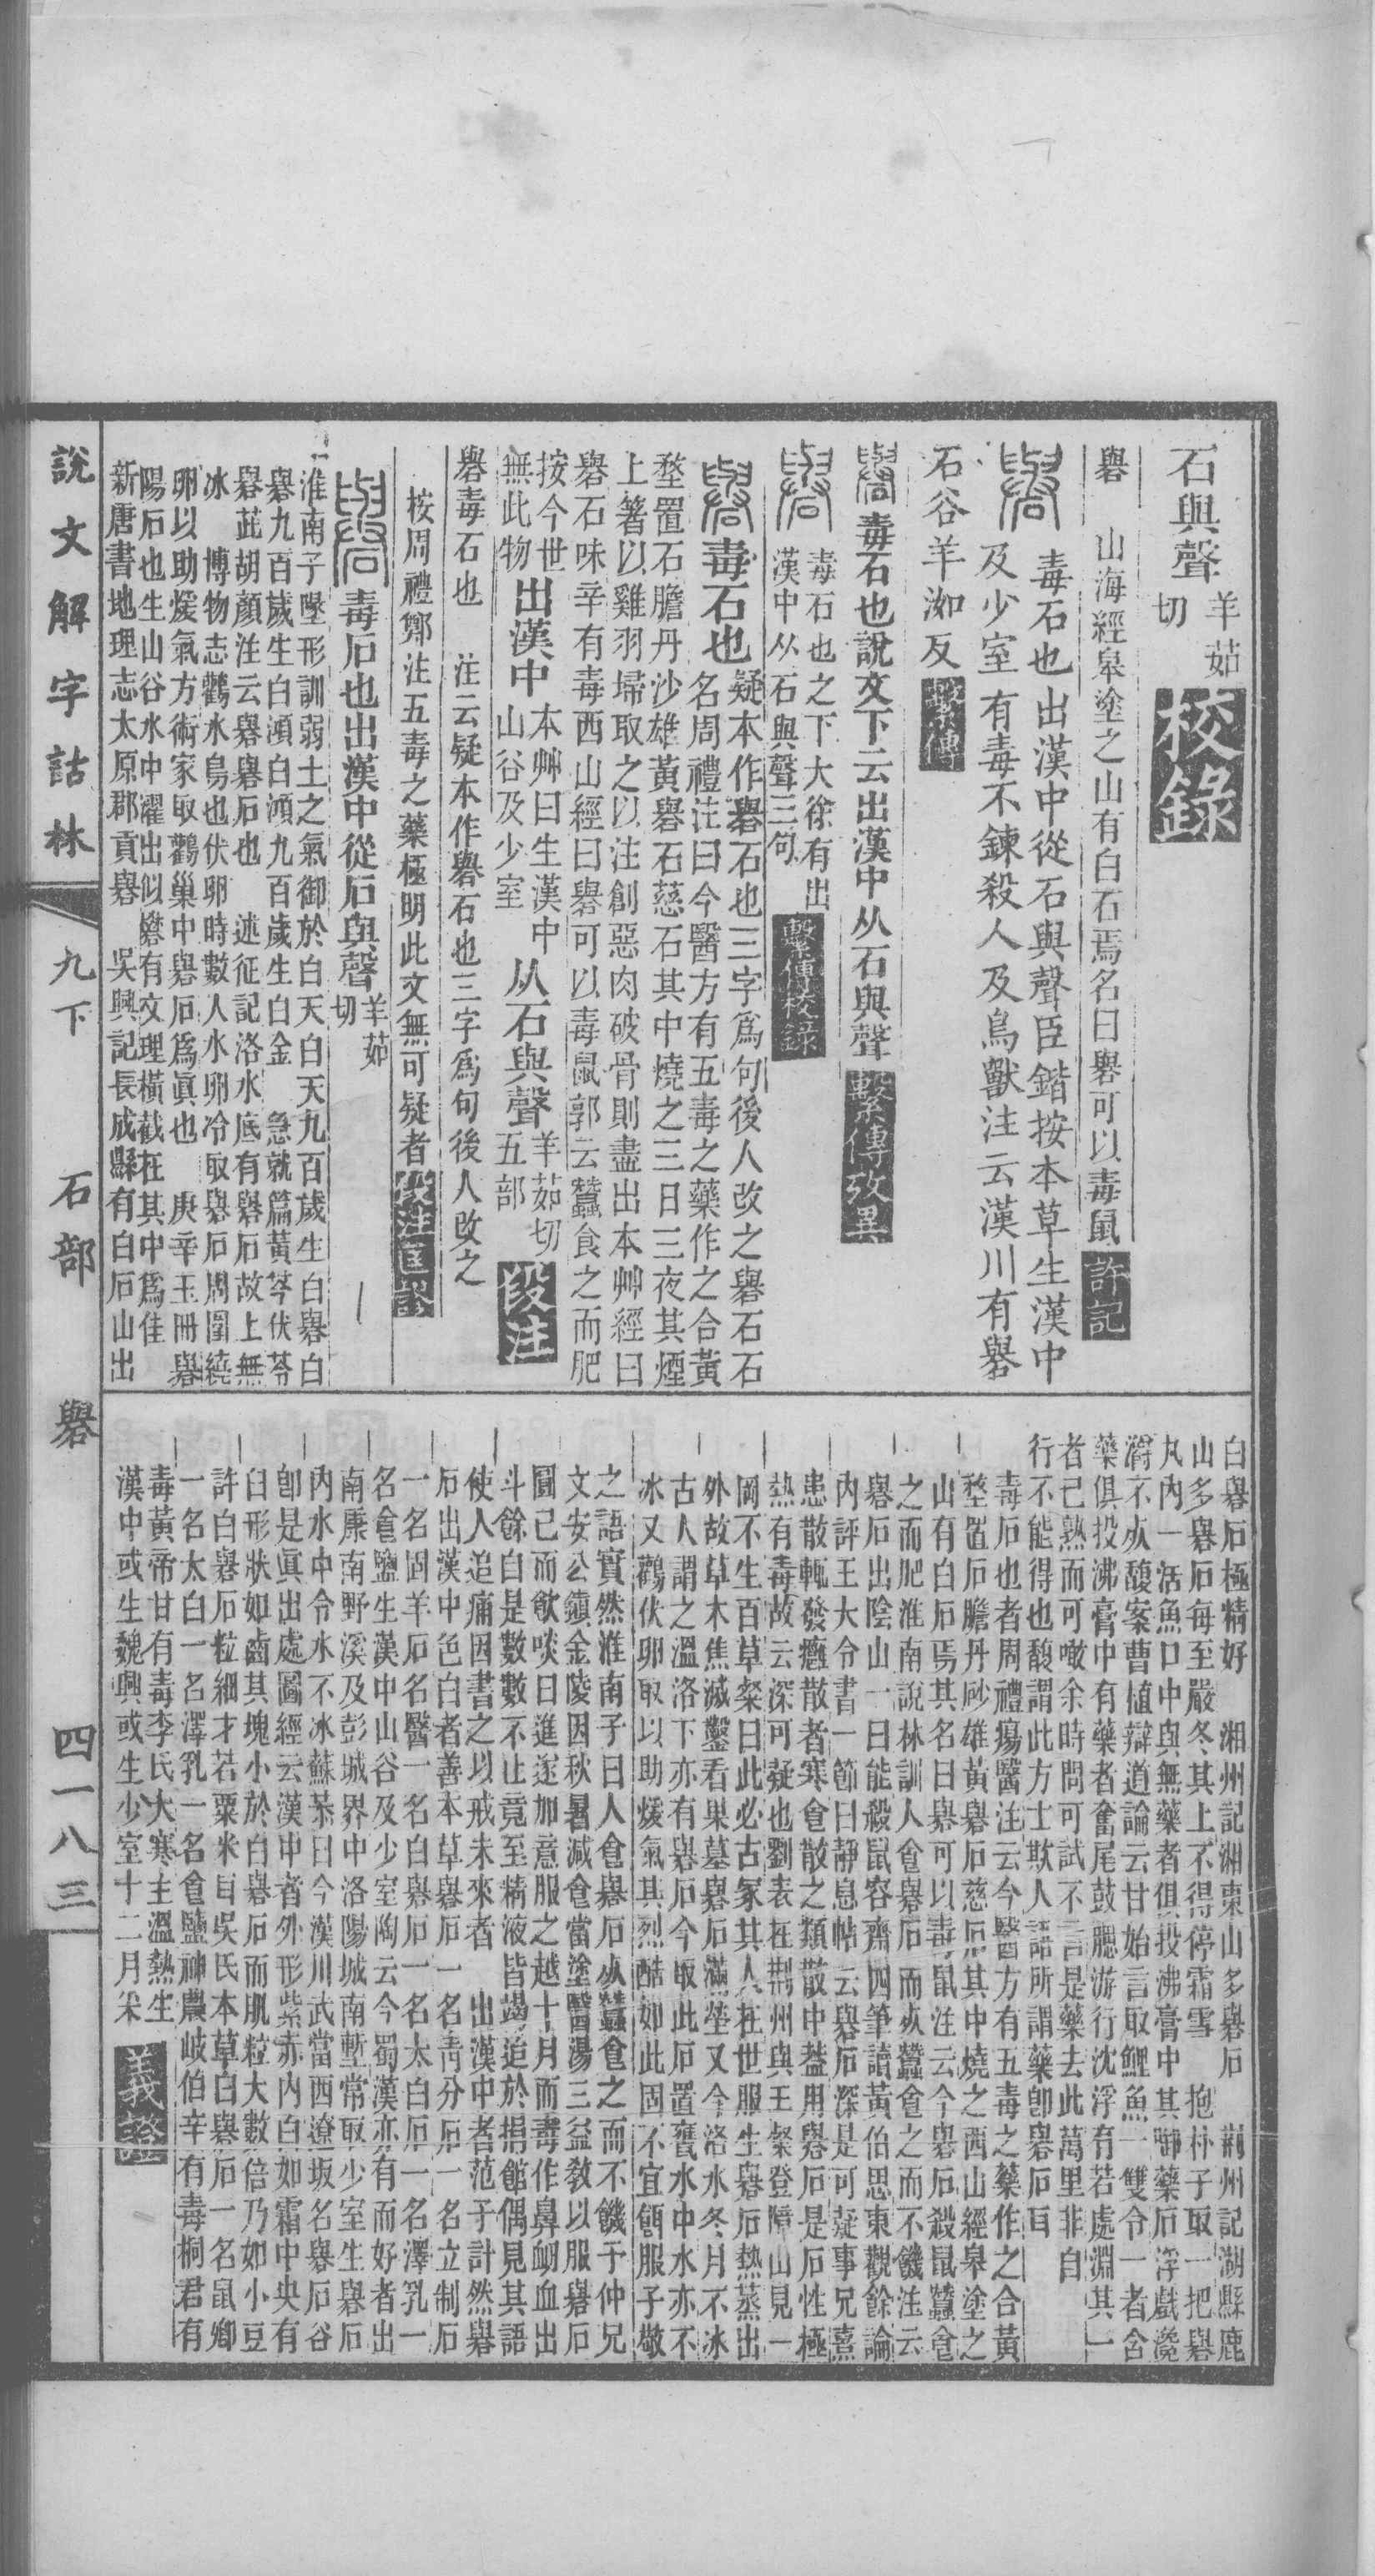 石與聲羊茹切 校錄
礜 山海經皋塗之山有白石焉名曰礜可以毒鼠 許記
礜 毒石也出漢中從石與聲臣鍇按本草生漢中
及少室有毒不鍊殺人及鳥獸注云漢川有礜
石谷羊洳反 繫傳
礜毒石也說文下云出漢中从石與聲 繫傳攷異
礜 毒石也之下大徐有出
漢中从石與聲三句 繫傳校錄
礜毒石也疑本作礜石也三字爲句後人改之礜石石
名周禮注曰今醫方有五毒之藥作之合黃
堥置石膽丹沙雄黃礜石慈石其中燒之三日三夜其煙
上箸以雞羽埽取之以注創惡肉破骨則盡出本艸經曰
礜石味辛有毒西山經曰礜可以毒鼠郭云蠶食之而肥
按今世
無此物出漢中本艸曰生漢中
山谷及少室从石與聲羊茹切
五部 段注
礜毒石也 注云疑本作礜石也三字爲句後人改之
按周禮鄭注五毒之藥極明此文無可疑者 段注匡謬
礜毒石也出漢中從石與聲羊茹
切
淮南子墬形訓弱土之氣御於白天白天九百歲生白礜白
礜九百歲生白澒白澒九百歲生白金 急就篇黃芩伏苓
礜茈胡顏注云礜礜石也 述征記洛水底有礜石故上無
冰 博物志鸛水鳥也伏卵時數人水卵冷取礜石周圍繞
卵以助煖氣方術家取鸛巢中礜石爲眞也 庚辛玉冊礜
陽石也生山谷水中濯出似礬有文理橫截在其中爲佳
新唐書地理志太原郡貢礜 吳興記長成縣有白石山出
白礜石極精好 湘州記湘東山多礜石 荊州記湖縣鹿
山多礜石每至嚴冬其上不得停霜雪 抱朴子取一把礜
丸內一活魚口中與無藥者俱投沸膏中其銜藥石浮戲瀺
灂不灰馥案曹植辯道論云甘始言取鯉魚一雙令一者含
藥俱投沸膏中有藥者奮尾鼓腮游行沈浮有若處淵其一
者已熟而可噉余時問可試不言是藥去此萬里非自
行不能得也馥謂此方士欺人語所謂藥卽礜石耳
毒石也者周禮瘍醫注云今醫方有五毒之藥作之合黃
堥置石膽丹砂雄黃礜石慈石其中燒之西山經皋塗之
山有白石焉其名曰礜可以毒鼠注云今礜石殺鼠蠶食
之而肥淮南說林訓人食礜石而灰蠶食之而不饑注云
礜石出陰山一曰能殺鼠容齋四筆讀黃伯思東觀餘論
內評王大令書一節曰靜息帖云礜石深是可疑事兄熹
患散輒發癰散者寒食散之類散中葢用礜石是石性極
熱有毒故云深可疑也劉表在荆州與王粲登障山見一
岡不生百草粲曰此必古冢其人在世服生礜石熱蒸出
外故草木焦滅鑿看果墓礜石滿塋又今洛水冬月不冰
古人謂之溫洛下亦有礜石今取此石置甕水中水亦不
冰又鸛伏卵取以助煖氣其烈酷如此固不宜餌服子敬
之語實然淮南子曰人食礜石灰蠶食之而不饑予仲兄
文安公鎮金陵因秋暑減食當塗醫湯三益敎以服礜石
圓已而飮啖日進遂加意服之越十月而毒作鼻衂血出
斗餘自是數數不止竟至精液皆竭迨於捐館偶見其語
使人追痛因書之以戒未來者 出漢中者范子計然礜
石出漢中色白者善本草礜石一名靑分石一名立制石
一名固羊石名醫一名白礜石一名太白石一名澤乳一
名食鹽生漢中山谷及少室陶云今蜀漢亦有而好者出
南康南野溪及彭城界中洛陽城南塹常取少室生礜石
內水中令水不冰蘇恭曰今漢川武當西遼坂名礜石谷
卽是眞出處圖經云漢中者外形紫赤內白如霜中央有
臼形狀如齒其塊小於白礜石而肌粒大數倍乃如小豆
許白礜石粒細才若粟米耳吳氏本草白礜石一名鼠鄉
一名太白一名澤乳一名食鹽神農岐伯辛有毒桐君有
毒黃帝甘有毒李氏大寒主溫熱生
漢中或生魏興或生少室十二月采 義證
說文解字詁林 九下 石部 礜 四一八三